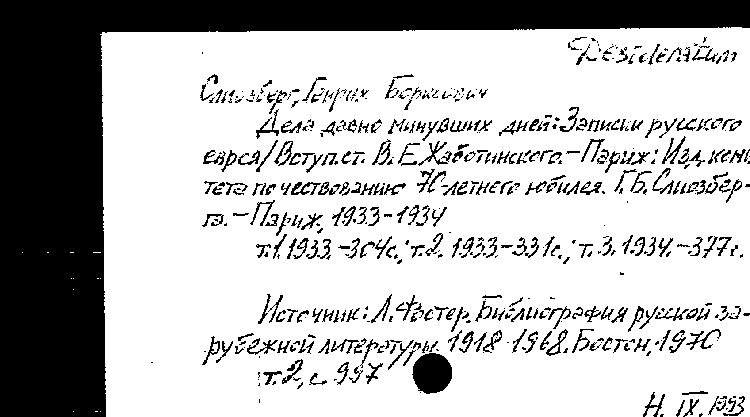 Desideratum
Слиозберг, Генрих Борисович
Дела давно минувших дней: Записки русского
еврея/Вступ.ст. В.Е.Жаботинского.-Париж: Изд.коми
тета по чествованию 70-летнего юбилея. Г.Б.Слиозбер-
га.-Париж, 1933-1934
т.1.1933.-304с.; т.2. 1933-331с.; т.3.1934.-377с.
Источник: Л.Фостер. Библиография русской за-
рубежной литературы. 1918-1968. Бостон, 1970
т.2, с. 997
Н. IX. 1993